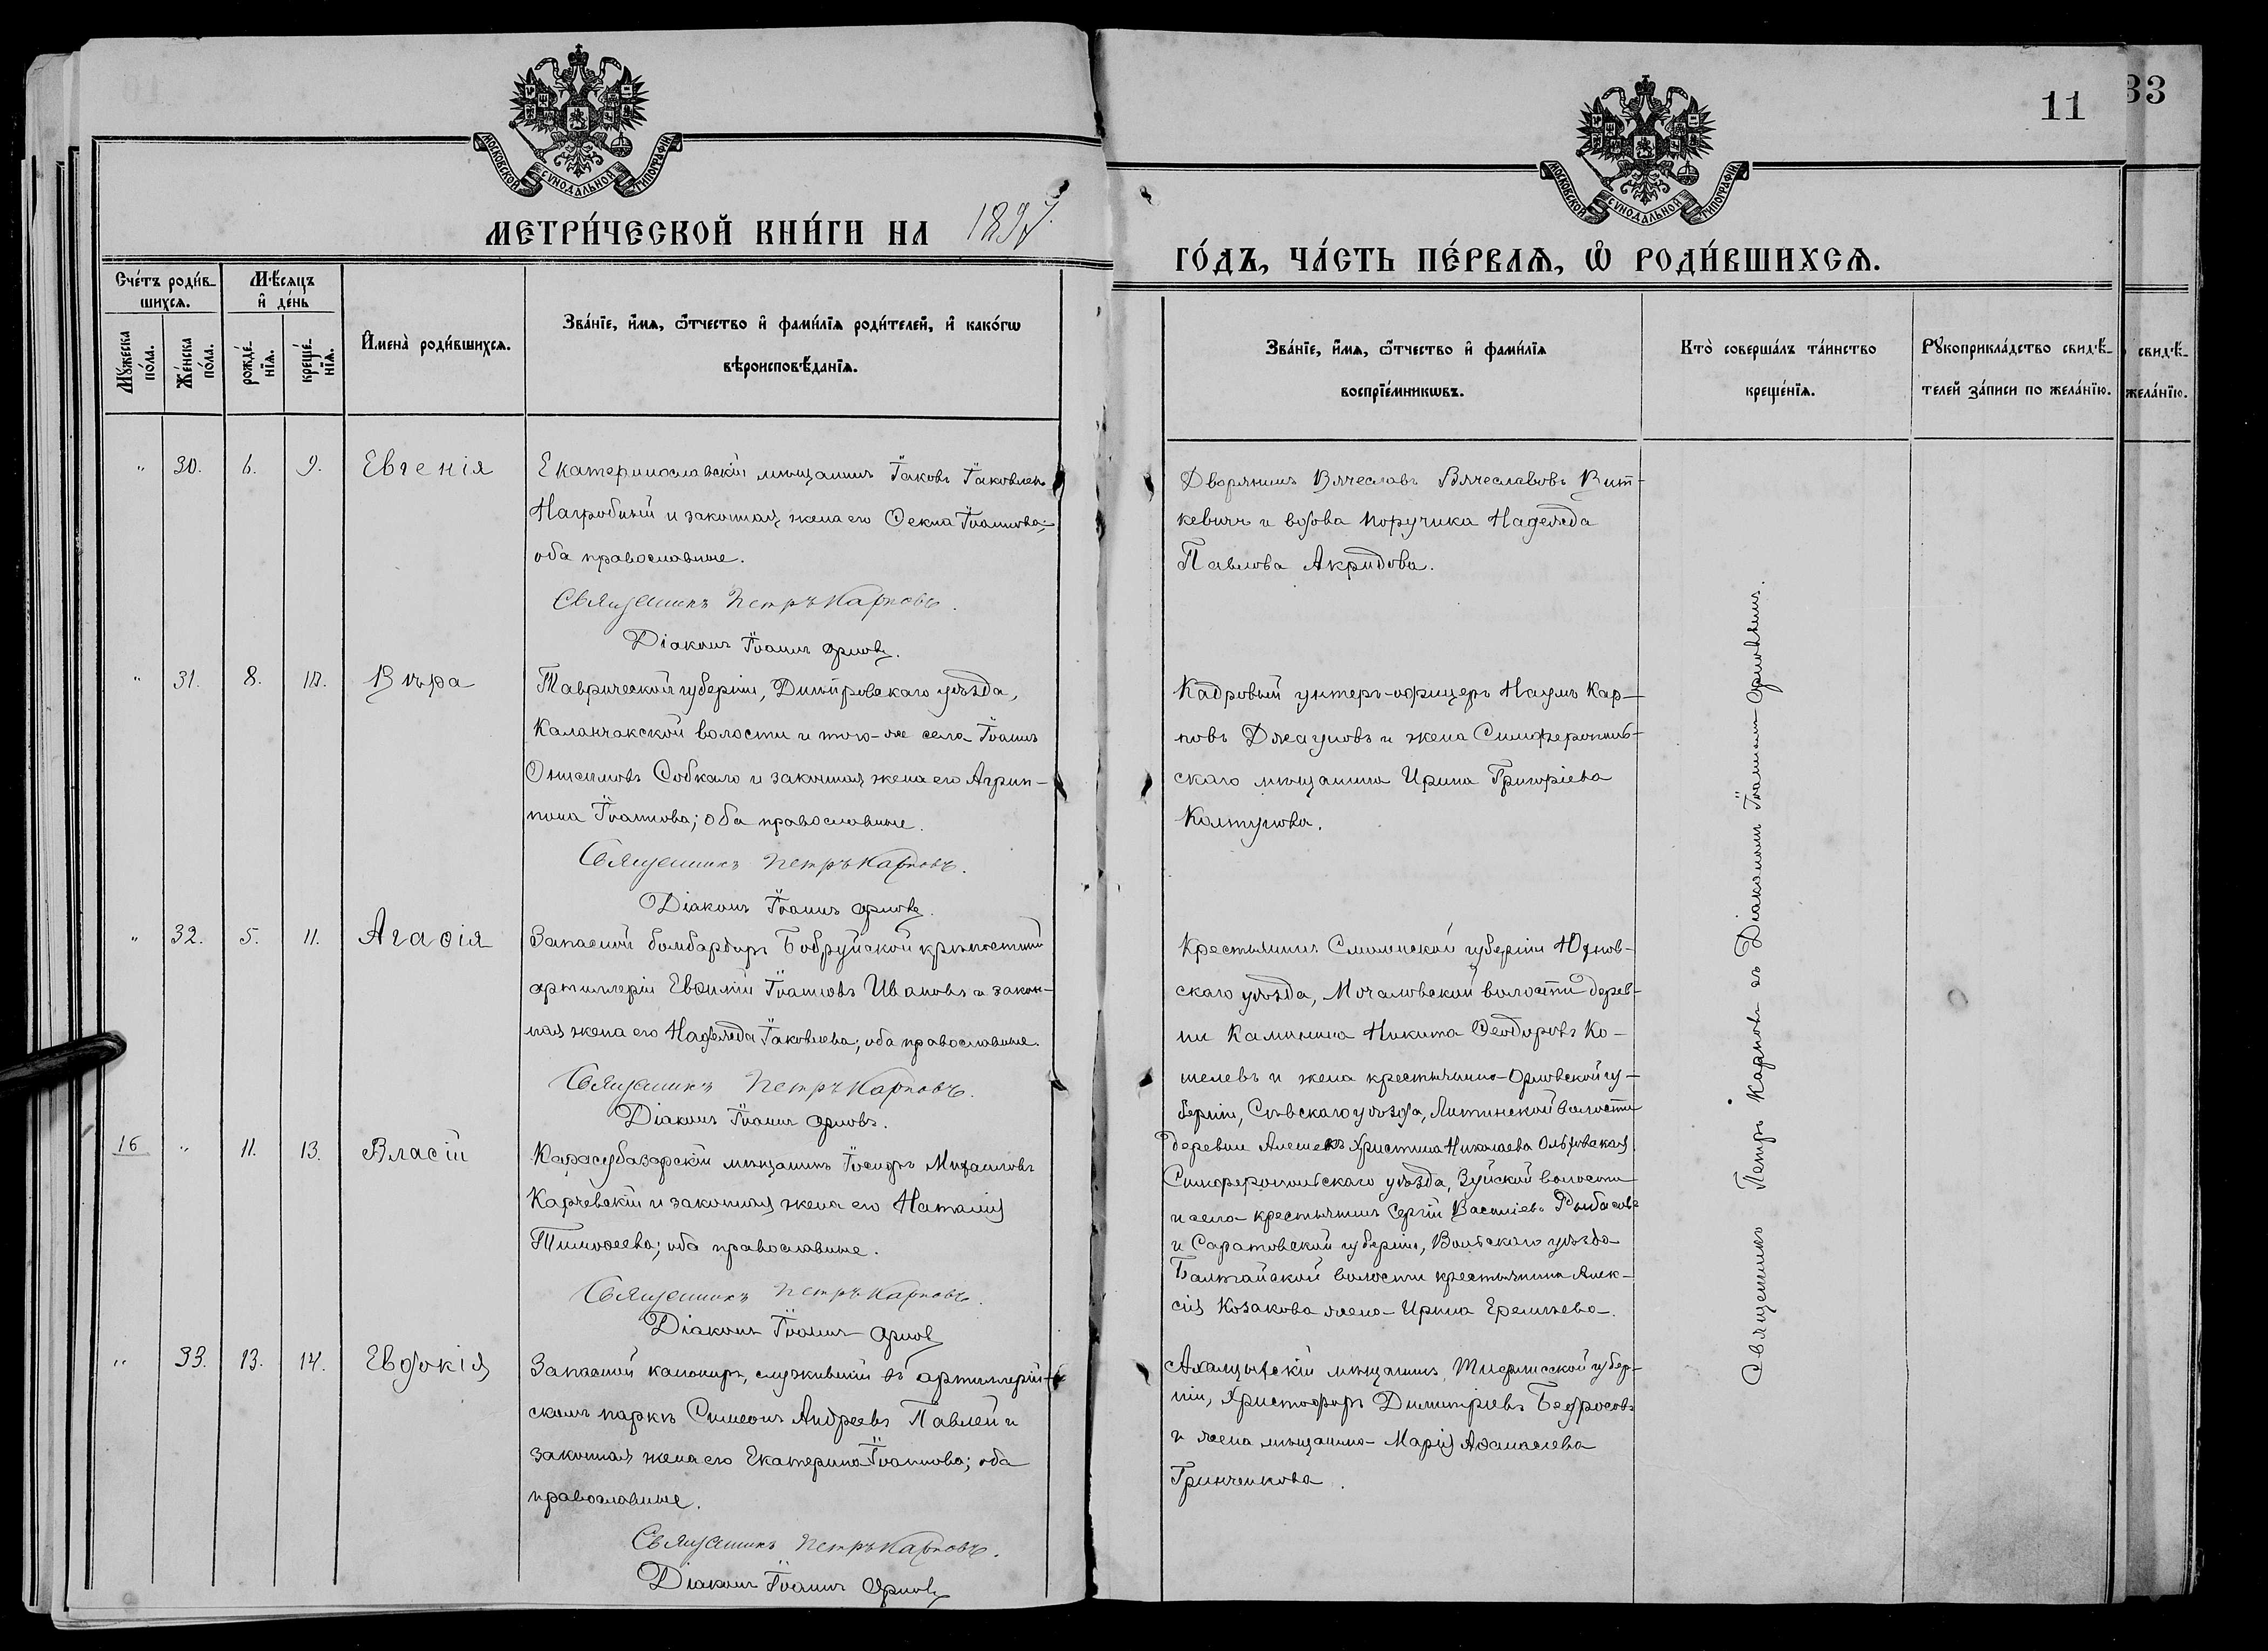 МОСКОВСКОЙ СѴНОДАЛЬНОЙ ТИПОГРАФІИ
МЕТРИ́ЧЕСКОЙ КНИ́ГИ НА 1897.
Сче́тъ роди́в-
шихсѧ.
Мѣ́сѧцъ
и҆ де́нь
Мꙋ́жеска
по́ла.
Же́нска
по́ла.
рожде́-
нїѧ.
креще́-
нїѧ.
И҆мена̀ роди́вшихсѧ.
Зва́нїе, и҆́мѧ, ѻ҆́тчество и҆ фами́лїѧ роди́телей, и҆ како́гѡ
вѣроисповѣ́данїѧ.
" 30. 6. 9. Евгенія
Екатеринославскій мѣщанинъ Іаковъ Іаковлевъ
Нагробный и законная жена его Ѳекла Іоаннова;
оба православные.
Священникъ Петръ Карповъ.
Діаконъ Іоаннъ Орловъ.
" 31. 8. 10. Вѣра
Таврической губерніи, Днѣпровскаго уѣзда,
Каланчакской волости и того-же села Іоаннъ
Онисимовъ Собкало и законная жена его Агрип-
пина Іоаннова; оба православные.
Священникъ Петръ Карповъ.
Діаконъ Іоаннъ Орловъ.
" 32. 5. 11. Агаѳія
Запасной бомбардиръ Бобруйской крѣпостной
артиллеріи Евѳимій Іоанновъ Ивановъ и закон-
ная жена его Надежда Іаковлева; оба православные.
Священникъ Петръ Карповъ.
Діаконъ Іоаннъ Орловъ.
16 " 11. 13. Власій
Карасубазарскій мѣщанинъ Іосифъ Михаиловъ
Карчевскій и законная жена его Наталія
Тимоѳеева; оба православные.
Священникъ Петръ Карповъ.
Діаконъ Іоаннъ Орловъ
" 33. 13. 14. Евдокія
Запасной канониръ, служившій въ артиллерій-
скомъ паркѣ Симеонъ Андреевъ Павлей и
законная жена его Екатерина Іоаннова; оба
православные.
Священникъ Петръ Карповъ.
Діаконъ Іоаннъ Орловъ
11
33
МОСКОВСКОЙ СѴНОДАЛЬНОЙ ТИПОГРАФІИ
ГО́ДЪ, ЧА́СТЬ ПЕ́РВАѦ, Ѡ҆ РОДИ́ВШИХСѦ.
Зва́нїе, и҆́мѧ, ѻ҆́тчество и҆ фами́лїѧ
воспрїе́мникѡвъ.
Кто̀ соверша́лъ та́инство
креще́нїѧ.
Рꙋкоприкла́дство свидѣ́-
телей за́писи по жела́нїю.
свидѣ́-
жела́нїю.
Дворянинъ Вячеславъ Вячеславовъ Вит-
кевичъ и вдова поручика Надежда
Павлова Акридова.
Кадровый унтеръ-офицеръ Наумъ Кар-
повъ Джауловъ и жена Симферополь-
скаго мѣщанина Ирина Григоріева
Колтунова.
Крестьянинъ Смоленской губерніи Юхнов-
скаго уѣзда, Мочаловской волости дерев-
ни Камынина Никита Ѳеодоровъ Ко-
шелевъ и жена крестьянина Орловской гу-
берніи, Сѣвскаго уѣзда, Литинской волости
деревни Алешекъ Христина Николаева Ольховская.
Симферопольскаго уѣзда, Зуйской волости
и села крестьянинъ Сергій Василіевъ Рыбасовъ
и Саратовской губерніи, Вольскаго уѣзда
Балтайской волости крестьянина Алек-
сія Козакова жена Ирина Еремѣева.
Ахалцыхскій мѣщанинъ, Тифлисской губер-
ніи, Христофоръ Димитріевъ Бедросовъ
и жена мѣщанина Марія Аѳанасіева
Гринченкова.
Священникъ Петръ Карповъ съ Діакономъ Іоанномъ Орловымъ.